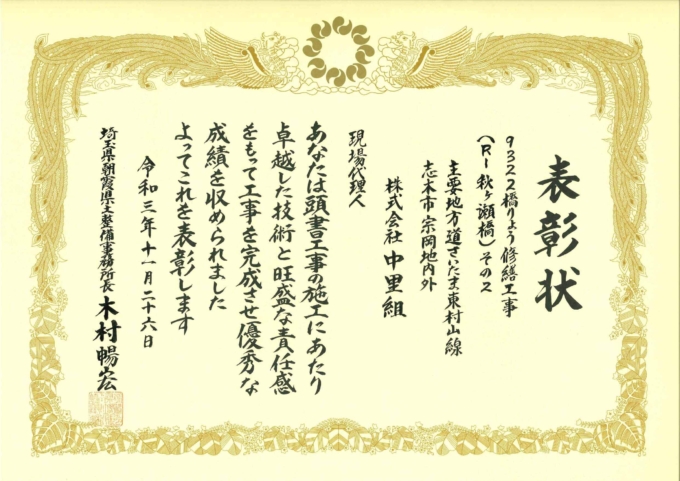 表彰状
9322橋りょう修繕工事
(R1秋ヶ瀬橋)その2
主要地方道さいたま東村山線
志木市宗岡地内外
株式会社中里組
現場代理人
あなたは頭書工事の施工にあたり
卓越した技術と旺盛な責任感
をもって工事を完成させ優秀な
成績を収められました
よってこれを表彰します
令和三年十一月二十六日
埼玉県朝霞県土整備事務所長 木村暢宏